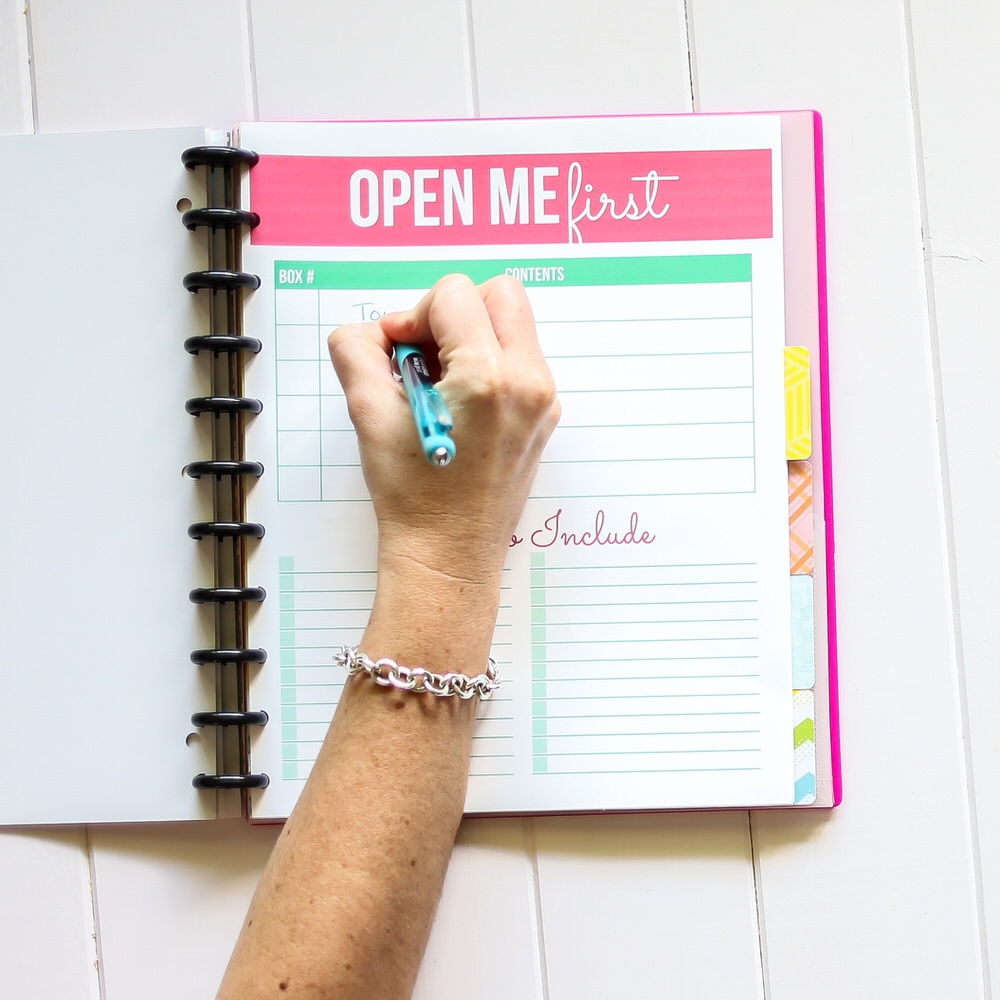 OPEN ME first
BOX # CONTENTS
Include